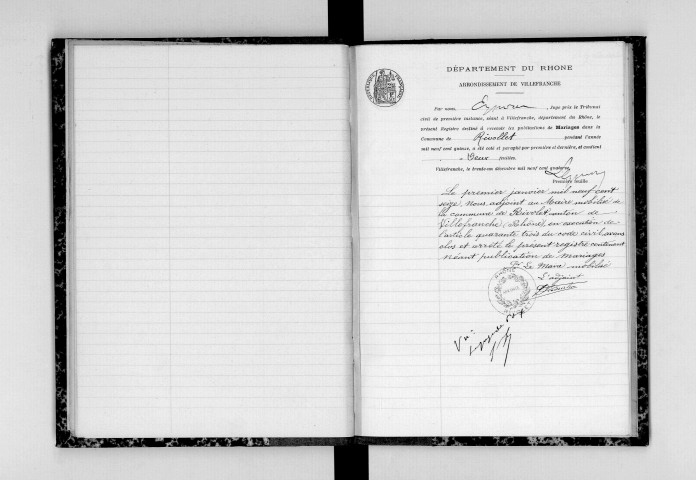 DÉPARTEMENT DU RHONE
ARRONDISSEMENT DE VILLEFRANCHE
Par nous, Juge près le Tribunal
civil de première instance, séant à Villefranche, département du Rhône, le
présent Registre destiné à recevoir les publications de Mariages dans la
Commune de Rivollet pendant l'année
mil neuf cent quinze, a été coté et paraphé par première et dernière, et contient
Deux feuilles.
Villefranche, le trente-un décembre mil neuf cent quatorze.
Première feuille
Le premier janvier mil neuf cent
seize, Nous adjoint au Maire mobilisé de
la commune de Rivolet canton de
Villefranche, (Rhône) en exécution de
l'article quarante trois du code civil avons
clos et arrêté le présent registre contenant
Néant publication de mariages
Le Maire mobilisé
L'adjoint
Vu